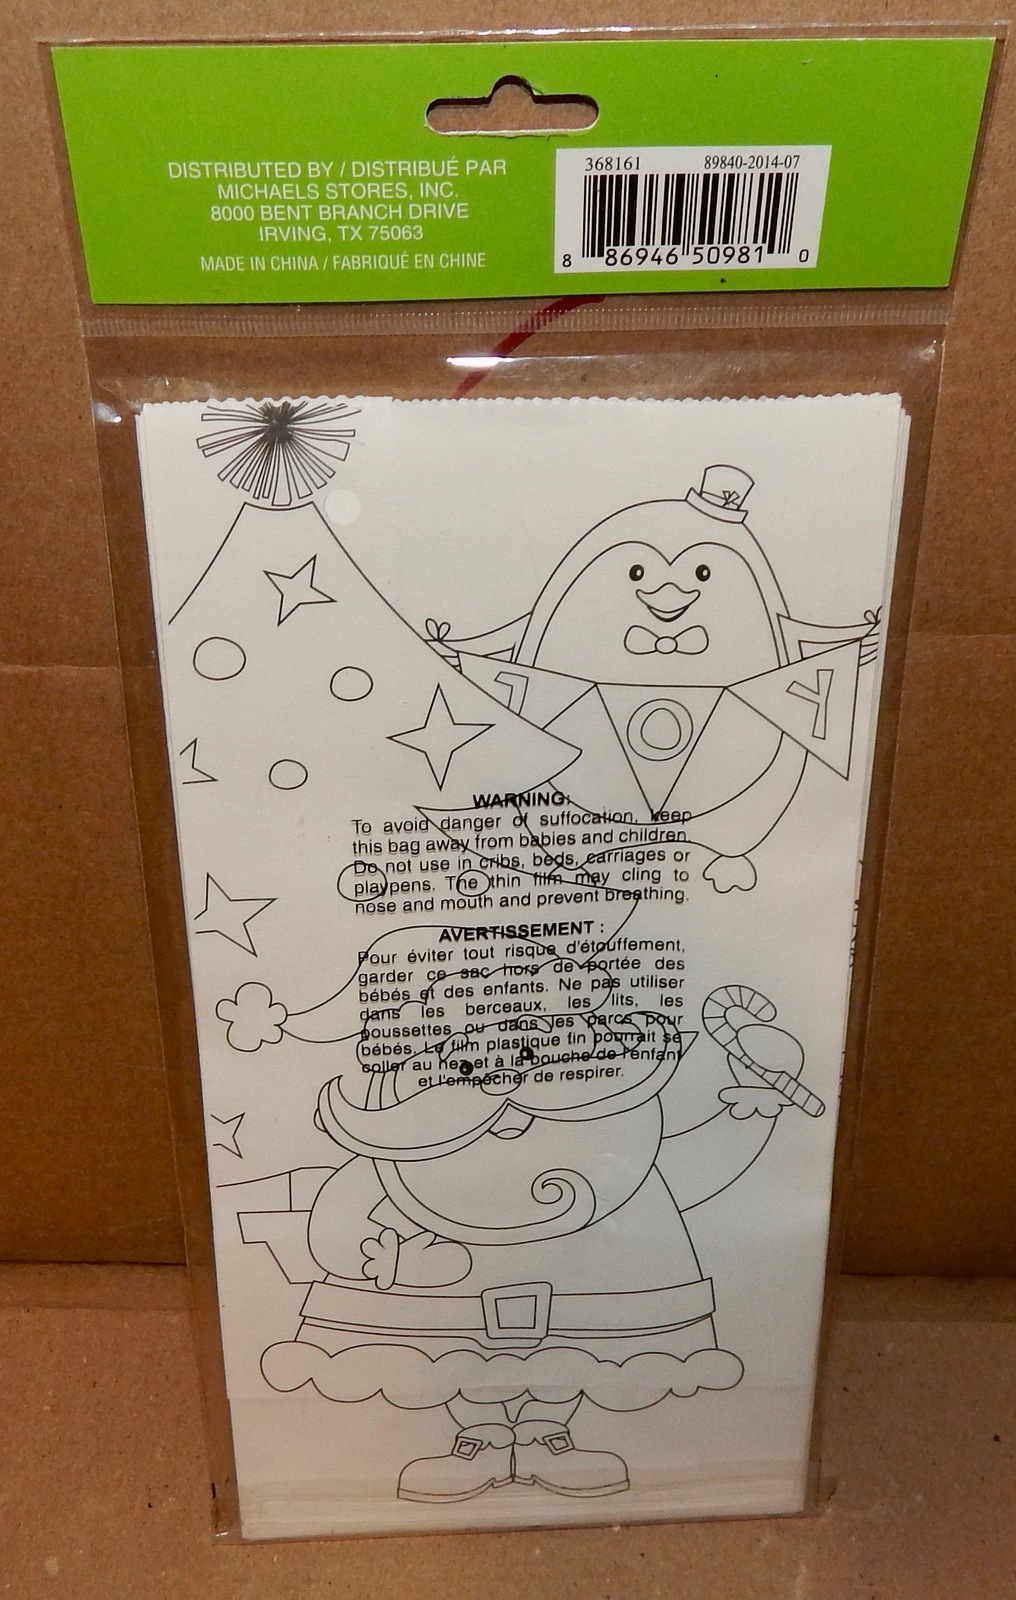 DISTRIBUTED BY / DISTRIBUÉ PAR
MICHAELS STORES, INC.
8000 BENT BRANCH DRIVE
IRVING, TX 75063
MADE IN CHINA / FABRIQUÉ EN CHINE
368161 89840-2014-07
8 86946 50981 0
J O Y
WARNING:
To avoid danger of suffocation, keep
this bag away from babies and children.
Do not use in cribs, beds, carriages or
playpens. The thin film may cling to
nose and mouth and prevent breathing.
AVERTISSEMENT :
Pour éviter tout risque d'étouffement,
garder ce sac hors de portée des
bébés et des enfants. Ne pas utiliser
dans les berceaux, les lits, les
poussettes ou dans les parcs pour
bébés. Le film plastique fin pourrait se
coller au nez et à la bouche de l'enfant
et l'empêcher de respirer.